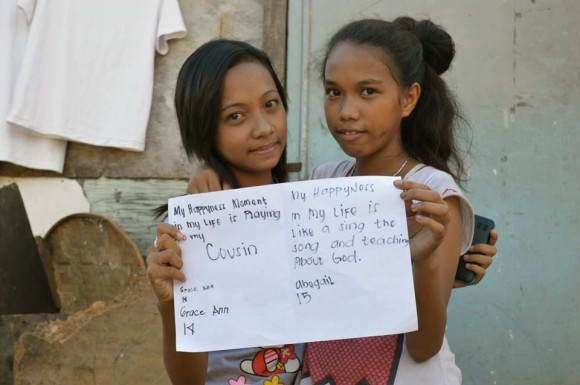 My Happyness Moment
in my LiFe is PLaying
to my
Cousin
Grace Ann
14
Grace Ann
14
My HappyNess
in My LiFe is
Like a sing the
song and teaching
About God.
abegail
15